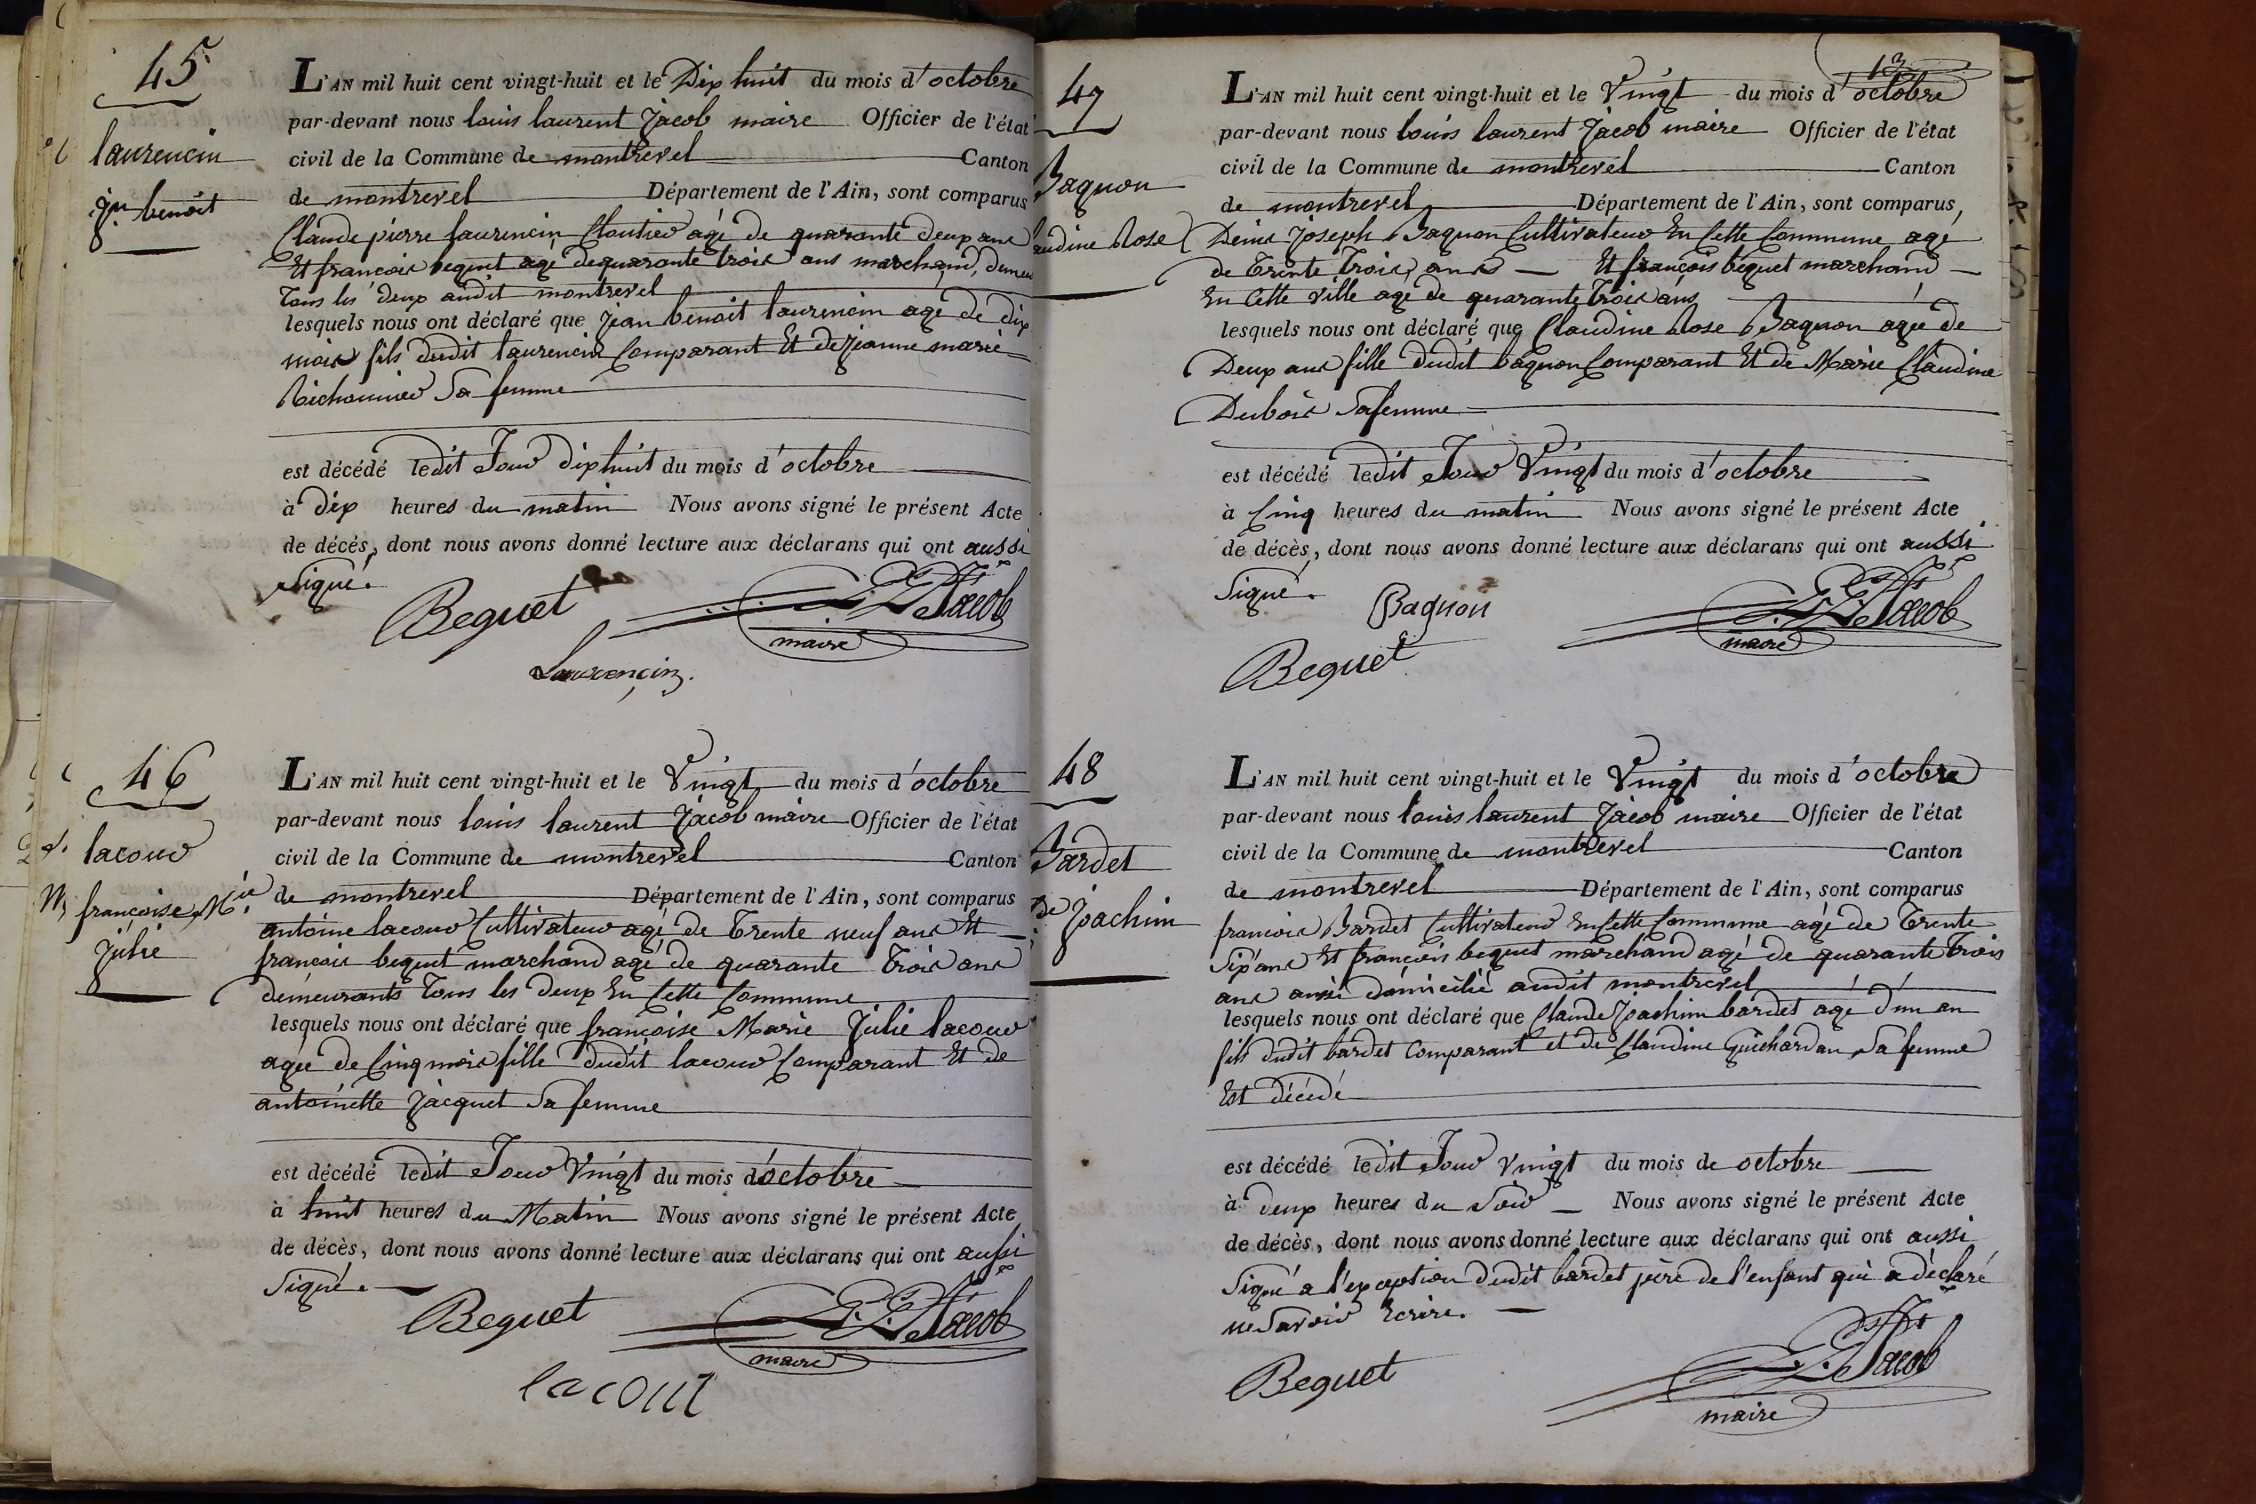 45
laurencin
Jn. benoit
L'AN mil huit cent vingt-huit et le Dix huit du mois d'octobre
par-devant nous louis laurent Jacob maire Officier de l'état
civil de la Commune de montrevel Canton
de montrevel Département de l'Ain, sont comparus
Claude pierre laurencin Cloutier agé de quarante deux ans
Et francois bequet agé de quarante trois ans marchand, demeu
Tous les deux audit montrevel
lesquels nous ont déclaré que Jean benoit laurencin agé de dix
mois fils dudit laurencin Comparant Et de jeanne marie
Richonnier Sa femme
est décédé ledit Jour dixhuit du mois d'octobre
à dix heures du matin Nous avons signé le présent Acte
de décés, dont nous avons donné lecture aux déclarans qui ont aussi
signé.
Bequet
L. L. Jacob
maire
Laurençin.
46
lacour
françoise Mie.
julie
L'AN mil huit cent vingt-huit et le Vingt du mois d'octobre
par-devant nous louis laurent Jacob maire Officier de l'état
civil de la Commune de montrevel Canton
de montrevel Département de l'Ain, sont comparus
antoine lacour Cultivateur agé de Trente neuf ans Et
francois bequet marchand agé de quarante Trois ans
demeurants Tous les deux En Cette Commune
lesquels nous ont déclaré que françoise Marie Julie lacour
agée de Cinq mois fille dudit lacour Comparant Et de
antoinette Jacquet Sa femme
est décédé ledit Jour Vingt du mois d'octobre
à huit heures du Matin Nous avons signé le présent Acte
de décès, dont nous avons donné lecture aux déclarans qui ont aussi
Signé.
Bequet
L. L. Jacob
maire
lacour
13
47
Baquon
audine Rose
L'AN mil huit cent vingt-huit et le Vingt du mois d'octobre
par-devant nous louis laurent Jacob maire Officier de l'état
civil de la Commune de montrevel Canton
de montrevel Département de l'Ain, sont comparus,
Denis Joseph Baquon Cultivateur En Cette Commune agé
de Trente Trois ans Et françois bequet marchand
En Cette ville agé de quarante Trois ans
lesquels nous ont déclaré que Claudine Rose Baquon agée de
Deux ans fille dudit baquon Comparant Et de Marie Claudine
Dubois Safemme
est décédé ledit Jour Vingt du mois d'octobre
à Cinq heures du matin Nous avons signé le présent Acte
de décès, dont nous avons donné lecture aux déclarans qui ont aussi
Signé.
Baquon
L. L. Jacob
maire
Bequet
48
Bardet
de Joachim
L'AN mil huit cent vingt-huit et le Vingt du mois d'octobre
par-devant nous louis laurent Jacob maire Officier de l'état
civil de la Commune de montrevel Canton
de montrevel Département de l'Ain, sont comparus
francois Bardet Cultivateur En Cette Commune agé de Trente
Six ans Et françois bequet marchand agé de quarante Trois
ans aussi domicilié audit montrevel
lesquels nous ont déclaré que Claude Joachim bardet agé d'un an
fils dudit bardet Comparant et de Claudine Guichardan Sa femme
Est décédé
est décédé ledit Jour vingt du mois de octobre
à deux heures du Soir Nous avons signé le présent Acte
de décès, dont nous avons donné lecture aux déclarans qui ont aussi
Signé a l'exception dudit bardet père de l'enfant qui a déclaré
ne Savoir Ecrire.
Bequet
L. L. Jacob
maire